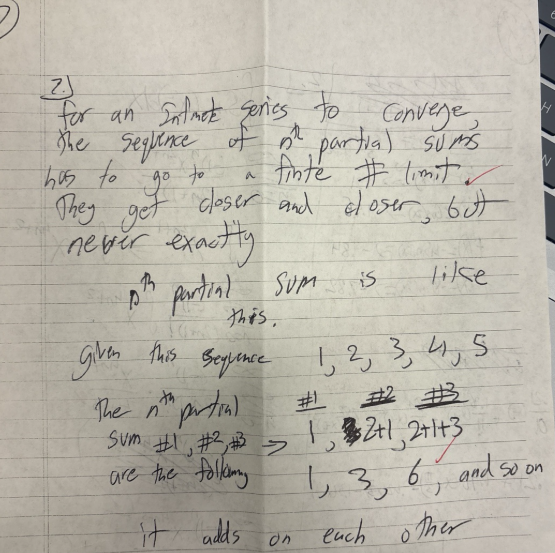 2.)
for an Infinite series to converge,
the sequence of nth partial sums
has to go to a finite # limit.
They get closer and closer, but
never exactly
nth partial sum is like
this.
given this sequence 1, 2, 3, 4, 5
the nth partial #1 #2 #3
sum #1, #2, #3 → 1, 2+1, 2+1+3
are the following 1, 3, 6, and so on
it adds on each other